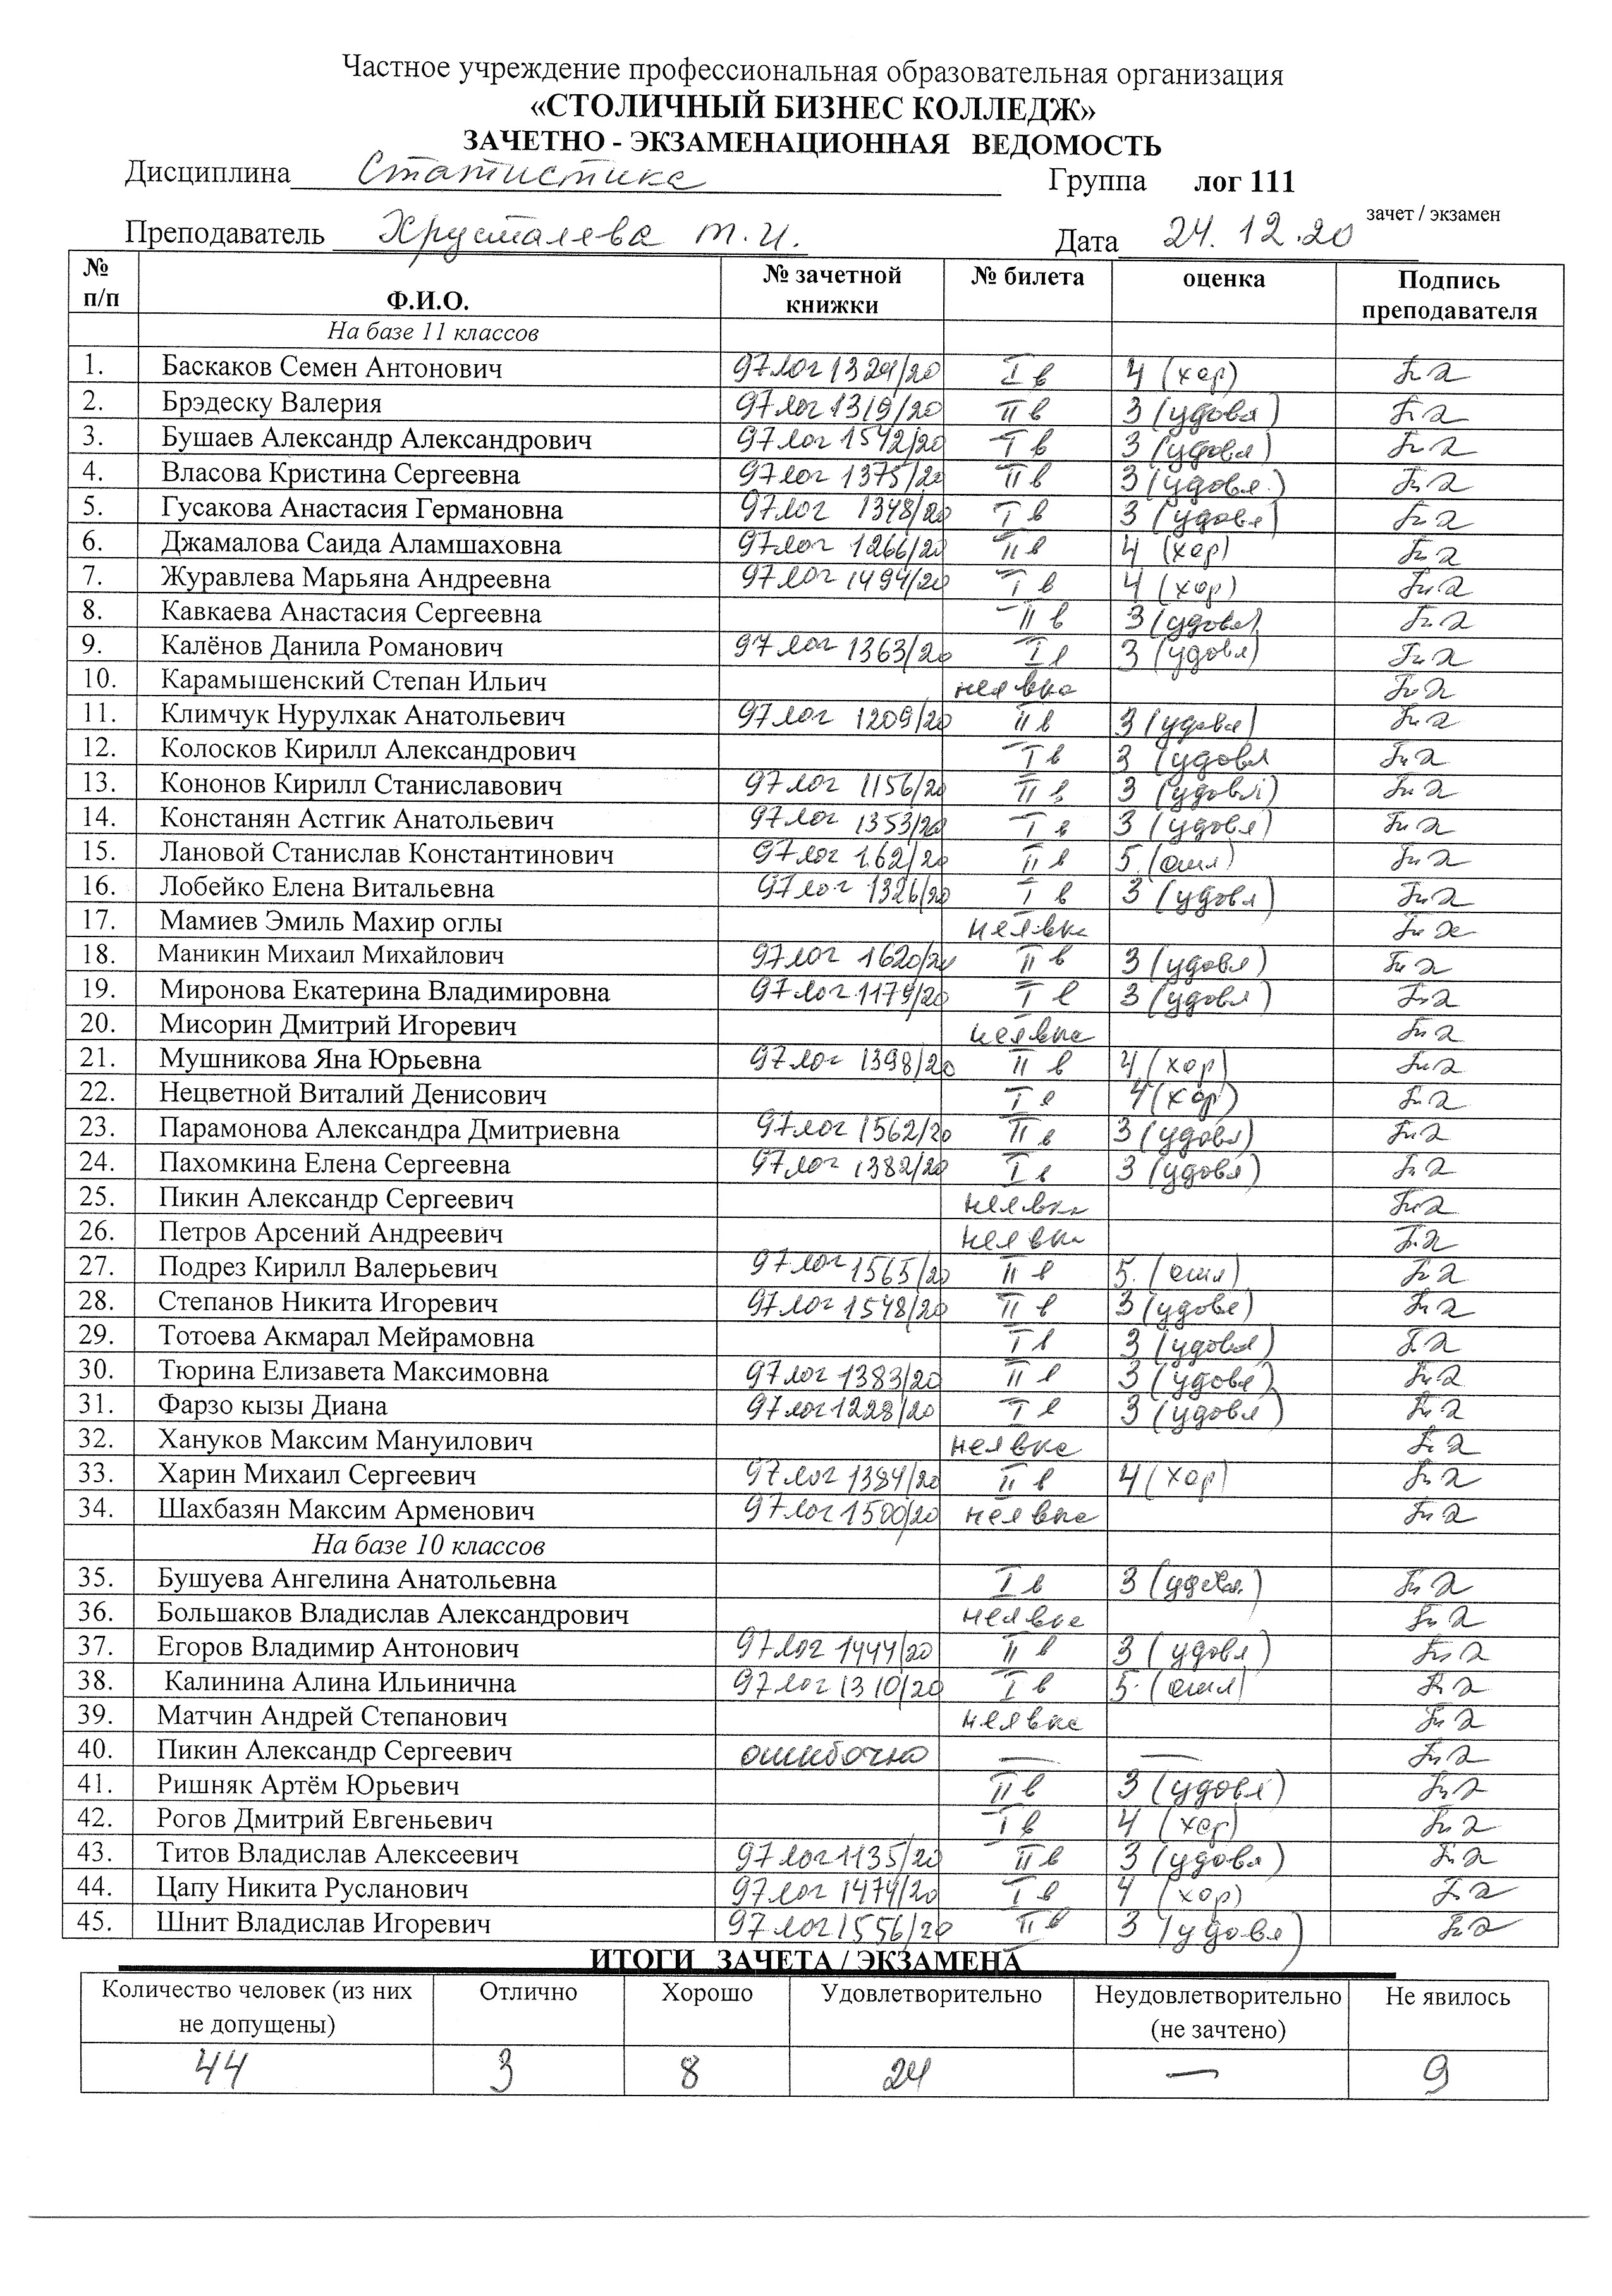 Частное учреждение профессиональная образовательная организация
«СТОЛИЧНЫЙ БИЗНЕС КОЛЛЕДЖ»
ЗАЧЕТНО - ЭКЗАМЕНАЦИОННАЯ ВЕДОМОСТЬ
Дисциплина Статистика Группа лог 111
зачет / экзамен
Преподаватель Хрусталева Т.И. Дата 24.12.20
№ п/п Ф.И.О. № зачетной книжки № билета оценка Подпись преподавателя
На базе 11 классов
1. Баскаков Семен Антонович 97лог 1324/20 I в 4 (хор)
2. Брэдеску Валерия 97лог 1319/20 II в 3 (удовл)
3. Бушаев Александр Александрович 97лог 1542/20 I в 3 (удовл)
4. Власова Кристина Сергеевна 97лог 1375/20 II в 3 (удовл.)
5. Гусакова Анастасия Германовна 97лог 1348/20 I в 3 (удовл)
6. Джамалова Саида Аламшаховна 97лог 1266/20 II в 4 (хор)
7. Журавлева Марьяна Андреевна 97лог 1494/20 I в 4 (хор)
8. Кавкаева Анастасия Сергеевна II в 3 (удовл)
9. Калёнов Данила Романович 97лог 1363/20 I в 3 (удовл)
10. Карамышенский Степан Ильич неявка
11. Климчук Нурулхак Анатольевич 97лог 1209/20 II в 3 (удовл)
12. Колосков Кирилл Александрович I в 3 (удовл
13. Кононов Кирилл Станиславович 97лог 1156/20 II в 3 (удовл)
14. Констанян Астгик Анатольевич 97лог 1353/20 I в 3 (удовл)
15. Лановой Станислав Константинович 97лог 162/20 II в 5 (отл)
16. Лобейко Елена Витальевна 97лог 1326/20 I в 3 (удовл)
17. Мамиев Эмиль Махир оглы неявка
18. Маникин Михаил Михайлович 97лог 1620/20 II в 3 (удовл)
19. Миронова Екатерина Владимировна 97лог 1179/20 I в 3 (удовл)
20. Мисорин Дмитрий Игоревич неявка
21. Мушникова Яна Юрьевна 97лог 1398/20 II в 4 (хор)
22. Нецветной Виталий Денисович I в 4 (хор)
23. Парамонова Александра Дмитриевна 97лог 1562/20 II в 3 (удовл)
24. Пахомкина Елена Сергеевна 97лог 1382/20 I в 3 (удовл)
25. Пикин Александр Сергеевич неявка
26. Петров Арсений Андреевич неявка
27. Подрез Кирилл Валерьевич 97лог 1565/20 II в 5. (отл)
28. Степанов Никита Игоревич 97лог 1548/20 II в 3 (удовл)
29. Тотоева Акмарал Мейрамовна I в 3 (удовл)
30. Тюрина Елизавета Максимовна 97лог 1383/20 II в 3 (удовл)
31. Фарзо кызы Диана 97лог 1228/20 I в 3 (удовл)
32. Хануков Максим Мануилович неявка
33. Харин Михаил Сергеевич 97лог 1384/20 II в 4 (хор)
34. Шахбазян Максим Арменович 97лог 1500/20 неявка
На базе 10 классов
35. Бушуева Ангелина Анатольевна I в 3 (удовл.)
36. Большаков Владислав Александрович неявка
37. Егоров Владимир Антонович 97лог 1444/20 II в 3 (удовл)
38. Калинина Алина Ильинична 97лог 1310/20 I в 5. (отл)
39. Матчин Андрей Степанович неявка
40. Пикин Александр Сергеевич ошибочно — —
41. Ришняк Артём Юрьевич II в 3 (удовл)
42. Рогов Дмитрий Евгеньевич I в 4 (хор)
43. Титов Владислав Алексеевич 97лог 1135/20 II в 3 (удовл)
44. Цапу Никита Русланович 97лог 1474/20 I в 4 (хор)
45. Шнит Владислав Игоревич 97лог 1556/20 II в 3 (удовл)
ИТОГИ ЗАЧЕТА / ЭКЗАМЕНА
Количество человек (из них не допущены) Отлично Хорошо Удовлетворительно Неудовлетворительно (не зачтено) Не явилось
44 3 8 24 — 9